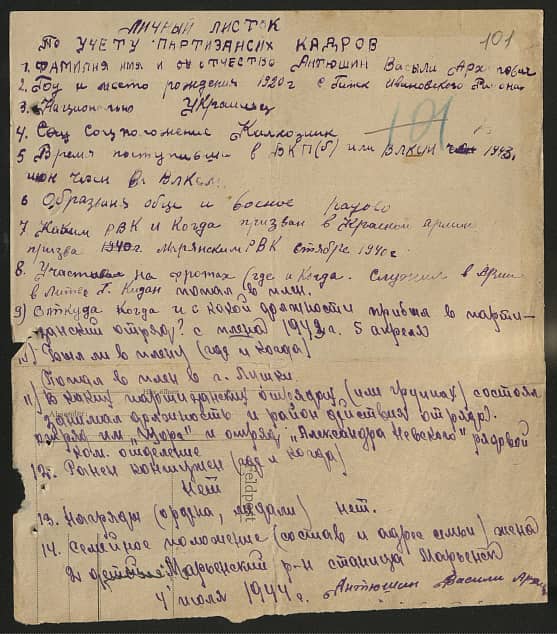 ЛИЧНЫЙ ЛИСТОК
101
ПО УЧЕТУ ПАРТИЗАНСИХ КАДРОВ
1. ФАМИЛИЯ ИМЯ И ОТЧЕСТВО АНТЮШИН Васыли Архипович
2. Год и место рождения 1920 г с Ивановского Района
3. Национально УКРАИНЕЦ
4. Соц соцположение Калхозник
101
5 Время поступивши в ВКП(б) или ВЛКСМ 1943,
член ВЛКСМ.
6 Образания обще и военое рядово
7. Каким РВК и Когда призван в Красной армии
призва 1940г Марянским РВК сктябре 1940 г
8. Участвовал на фротах (где и Когда. Служил в Арми
в Литве Г. попал в плен.
9) Откуда Когда и с какой должности прибыл в парти-
занский отряд? с плена 1942 г. 5 апреля
10) Были ли в плену (где и когда)
Попал в плен в г.
11) В каких партизанских отрядах (или группах) состоял
Занимал должность и район действия отряда).
отряд им и отряд "Александра Невского" рядовой
ком. отделение
12. Ранен контужен (где и когда)
Нет
Feldpost
13. Награды (ордена, медали) нет.
14. Семейное положение (состав и адрес семьи) жена
2 Марьенский р-н станица Марьенск
4 июля 1944 г. Антюшин Васили Архи